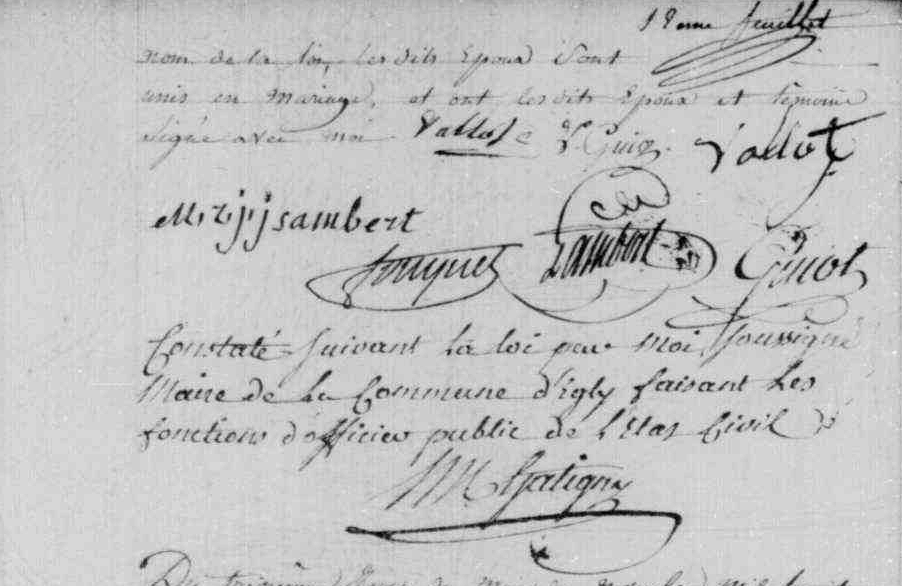 12eme feuillet
nom de la loi, les dits Epoux sont
unis en mariage, et ont les dits Epoux et temoins
signé avec moi Vallot Guiot Vallot
Isambert
Fouquet Lambert Guiot
Constaté suivant la loi par moi soussigné
Maire de la Commune d'Egly faisant les
fonctions d'officier public de l'Etat Civil